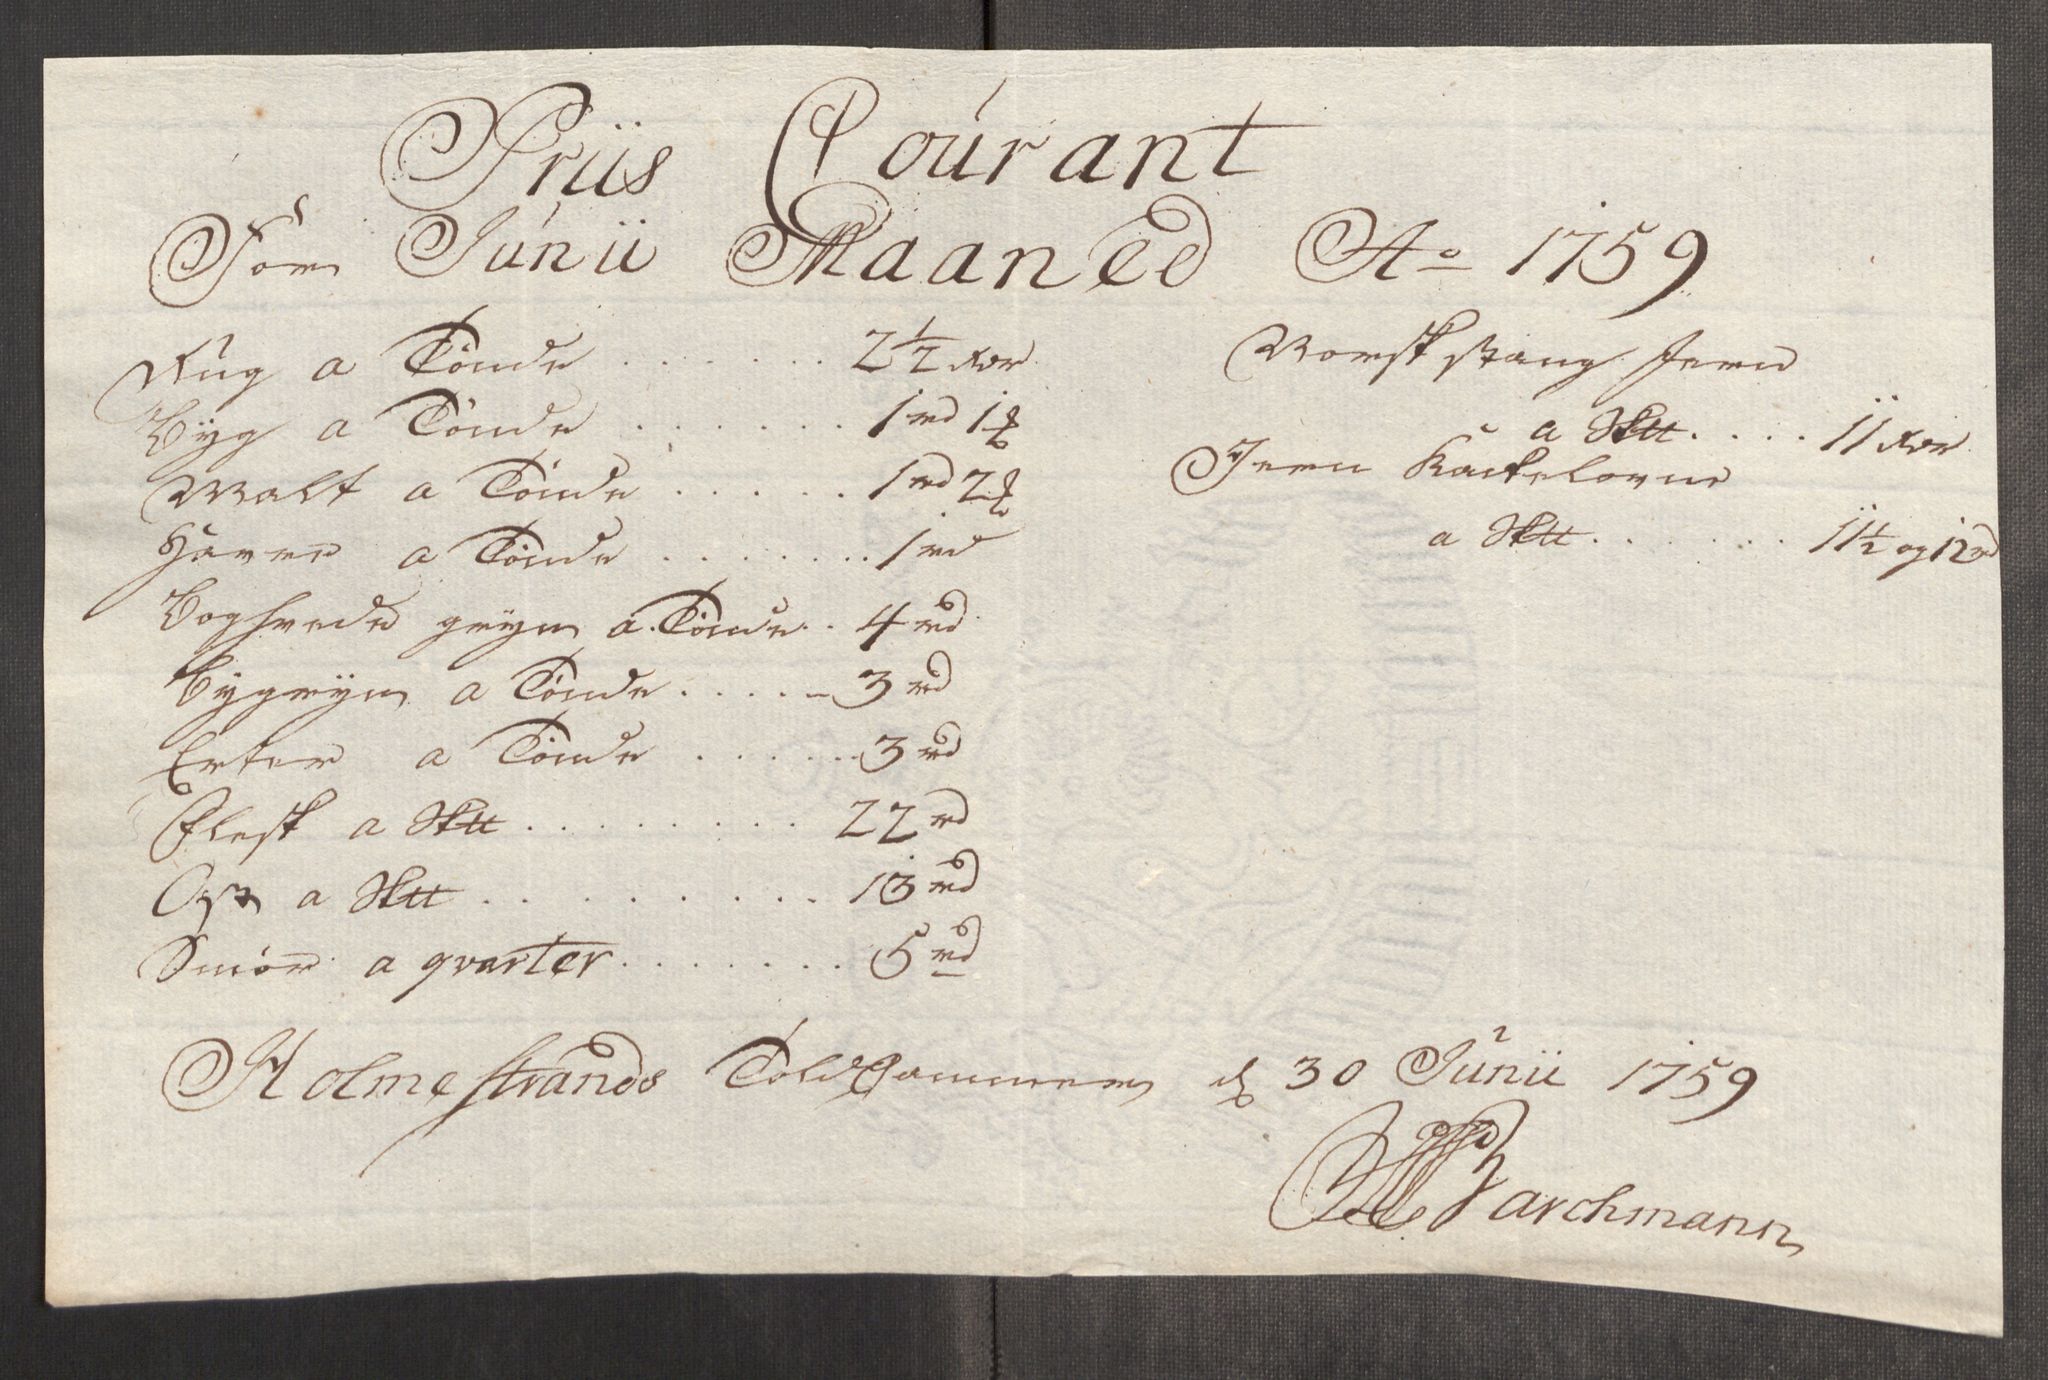 Priis Courant
For Junii Maaned Ao 1759
Rug a Tönde . . . . . . 2 1/2 rdr
Byg a Tönde . . . . . . . 1 rd 1 ß
Malt a Tönde . . . . . 1 rd 2 ß
Haver a Tönde . . . . . . . 1 rd
Boghvede gryn a Tönde . . 4 rd
Byggryn a Tönde . . . . . 3 rd
Erter a Tönde . . . . . . 3 rd
Flesk a Sktt . . . . . . . . . 22 rd
Ost a Sktt . . . . . . . . . . 13 rd
Smör a qvarter . . . . . . . . 5 rd
Norsk stang Jern
a Sktt . . . . 11 rdr
Jern Kackelovne
a Sktt . . . . . . . 11 1/2 og 12 rd
Holmestrands ToldCammer d 30 Junii 1759
Barchmann